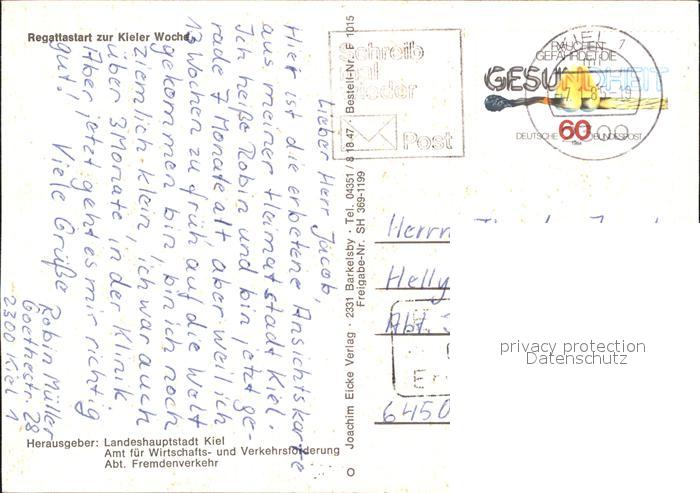 Regattastart zur Kieler Woche
Lieber Herr Jacob,
Hier ist die erbetene Ansichtskarte
aus meiner Heimatstadt Kiel.
Ich heiße Robin und bin jetzt ge-
rade 7 Monate alt aber weil ich
13 Wochen zu früh auf die Welt
gekommen bin, bin ich noch
ziemlich klein, ich war auch
über 3 Monate in der Klinik
Aber jetzt geht es mir richtig
gut!
Viele Grüße
Robin Müller
Goethestr. 28
2300 Kiel 1
Herausgeber: Landeshauptstadt Kiel
Amt für Wirtschafts- und Verkehrsförderung
Abt. Fremdenverkehr
Joachim Eicke Verlag · 2331 Barkelsby · Tel. 04351 / 8 18 47 · Bestell-Nr. F 1015
Freigabe-Nr. SH 369-1199
Schreib
mal
wieder
Post
KIEL
RAUCHEN
GEFÄHRDET DIE
GESUNDHEIT
60
DEUTSCHE BUNDESPOST
1984
Herrn
Helly
Abt.
6450
privacy protection
Datenschutz